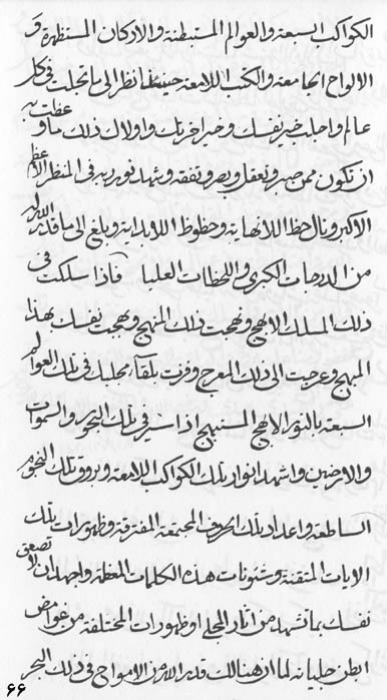 الكواكب السبعة والعوالم المستبطنة والاركان المستظهرة و
الالواح الجامعة والكتب اللامعة حينئذ انظر الى ما تجلت في كل
عالم واحبلت خير نفسك وخير اخرتك واولاك ذلك ما وعظت به
ان تكون ممن صبر وتعقل وبصر وتفقه ويشهد نور ربه في المنظر الاعظم
الاكبر ونال حظ اللانهاية وحظوظ اللابداية وبلغ الى ما قدر الله له
من الدرجات الكبرى واللحظات العليا فاذا سلكت في
ذلك المسلك الابهج ونهجت ذلك المنهج وبهجت نفسك بهذا
المبهج وعرجت الى ذلك المعرج وفزت بلقاء محليك في تلك العوالم
السبعة بالنور الابهج المستبهج اذا سر في تلك البحور والسموات
والارضين واشهد انوار تلك الكواكب اللامعة وبروق تلك النجوم
الساطعة واعداد تلك الحروف المجتمعة المفترقة وظهورات تلك
الايات المتقنة وشئونات هذه الكلمات المعظمة واجهد ان لا تصعق
نفسك بما تشهد من آثار المجلي او ظهورات المختلفة من غوامض
ابطن جلبابه لما ان هنالك قدر الله من الامواج في ذلك البحر
٦٦